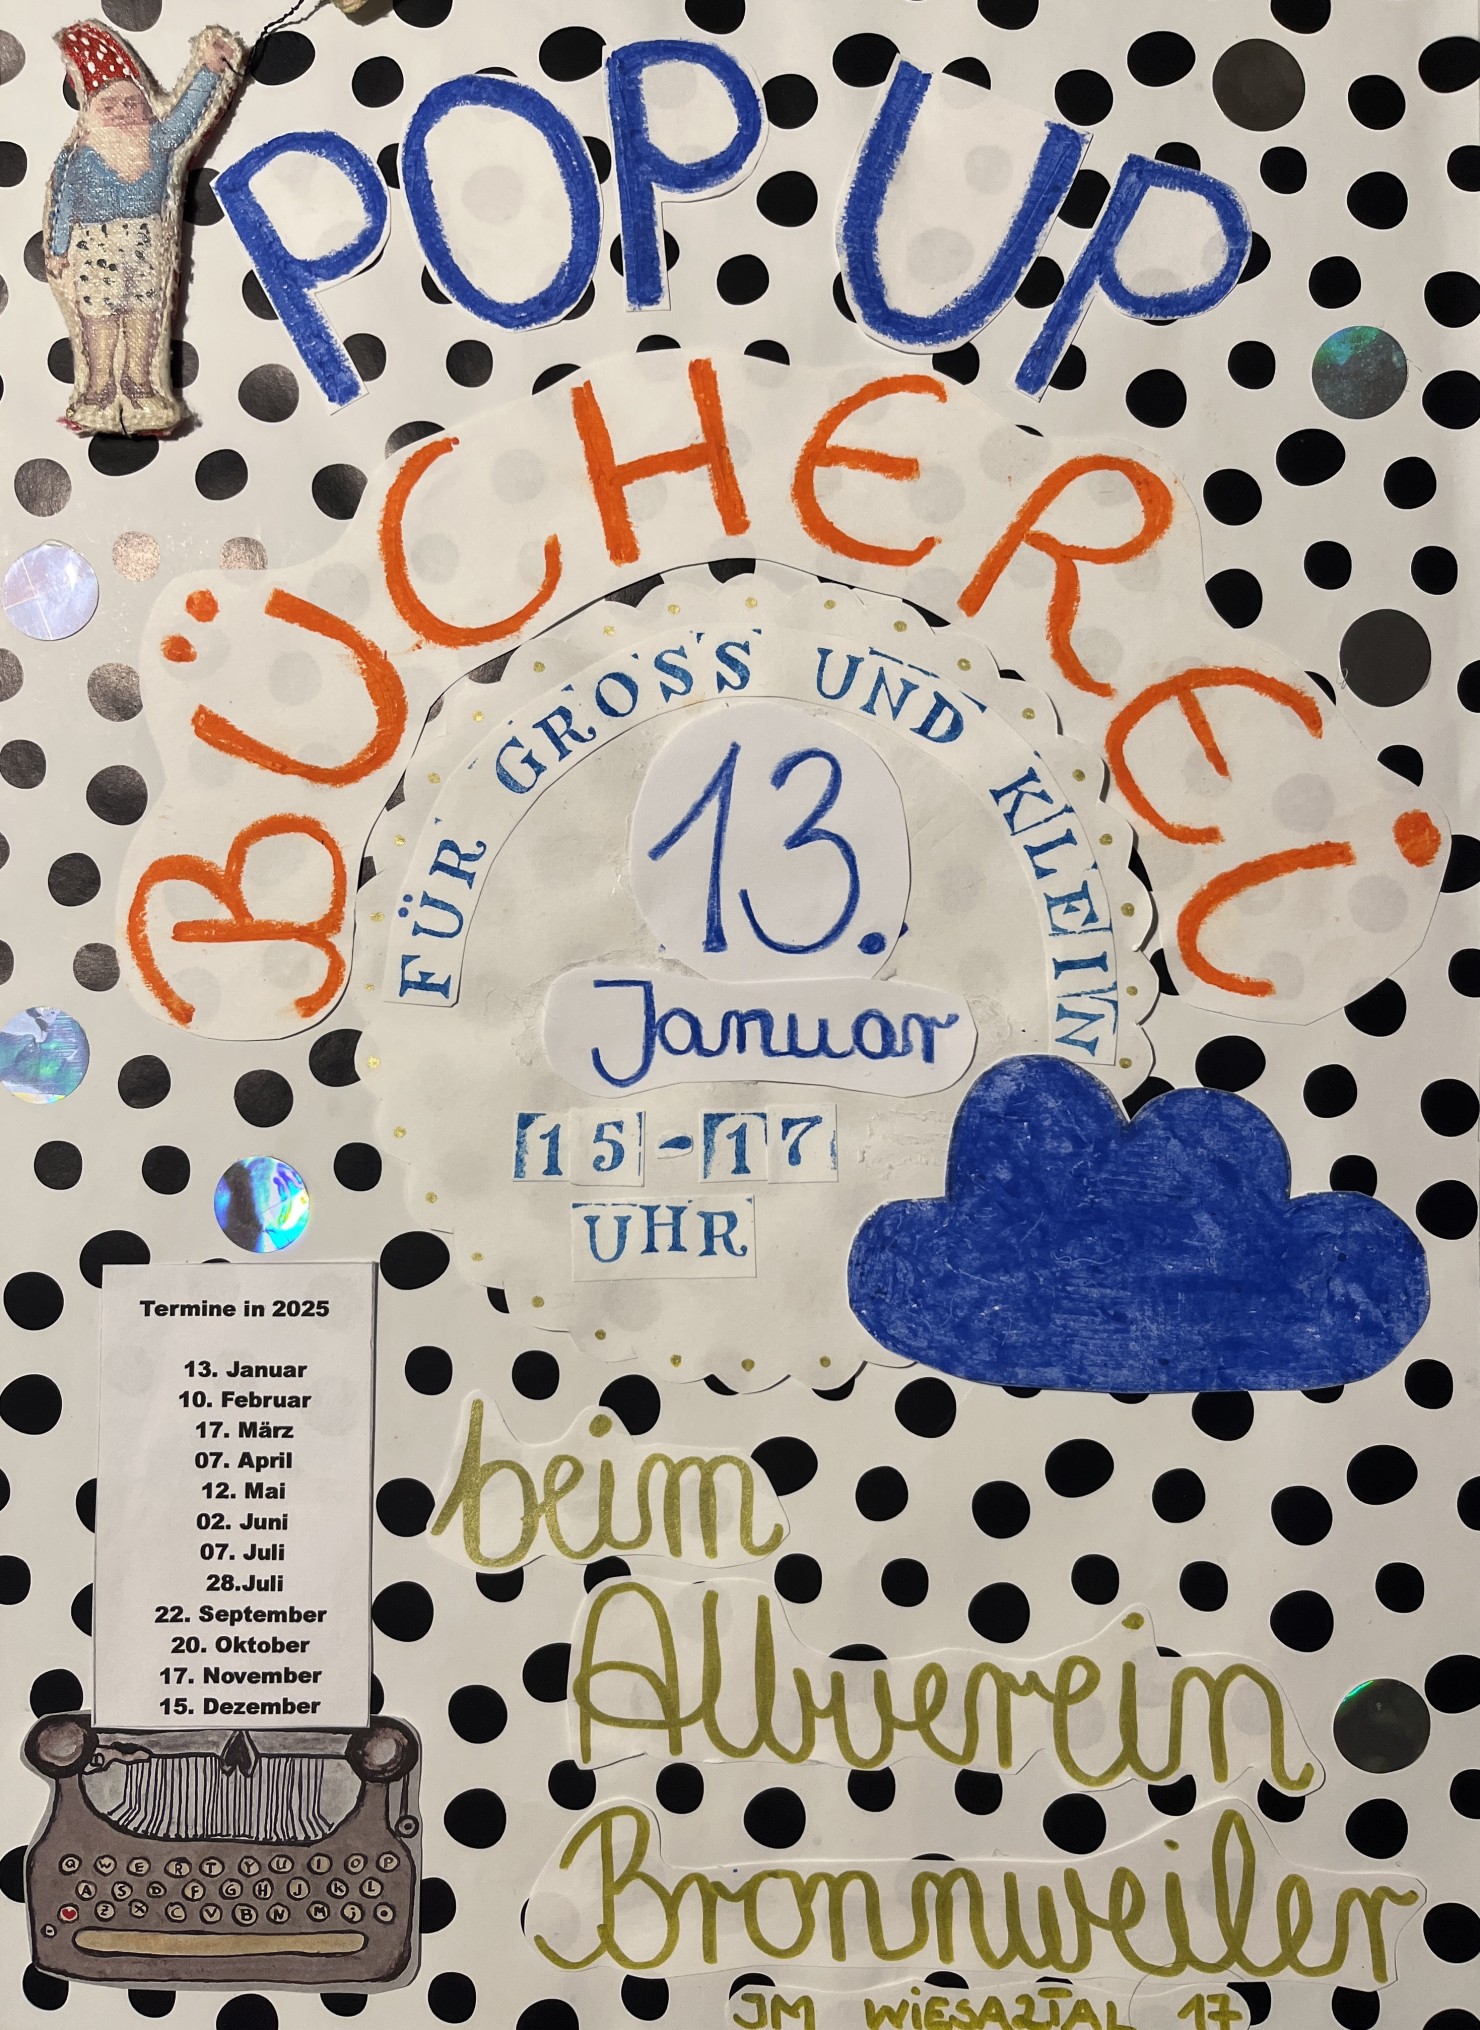 POP UP
BÜCHEREI
FÜR GROSS UND KLEIN
13.
Januar
15-17
UHR
Termine in 2025
13. Januar
10. Februar
17. März
07. April
12. Mai
02. Juni
07. Juli
28.Juli
22. September
20. Oktober
17. November
15. Dezember
beim
Albverein
Bronnweiler
IM WIESAZTAL 17
Q W E R T Y U I O P
A S D F G H J K L
Z X C V B N M